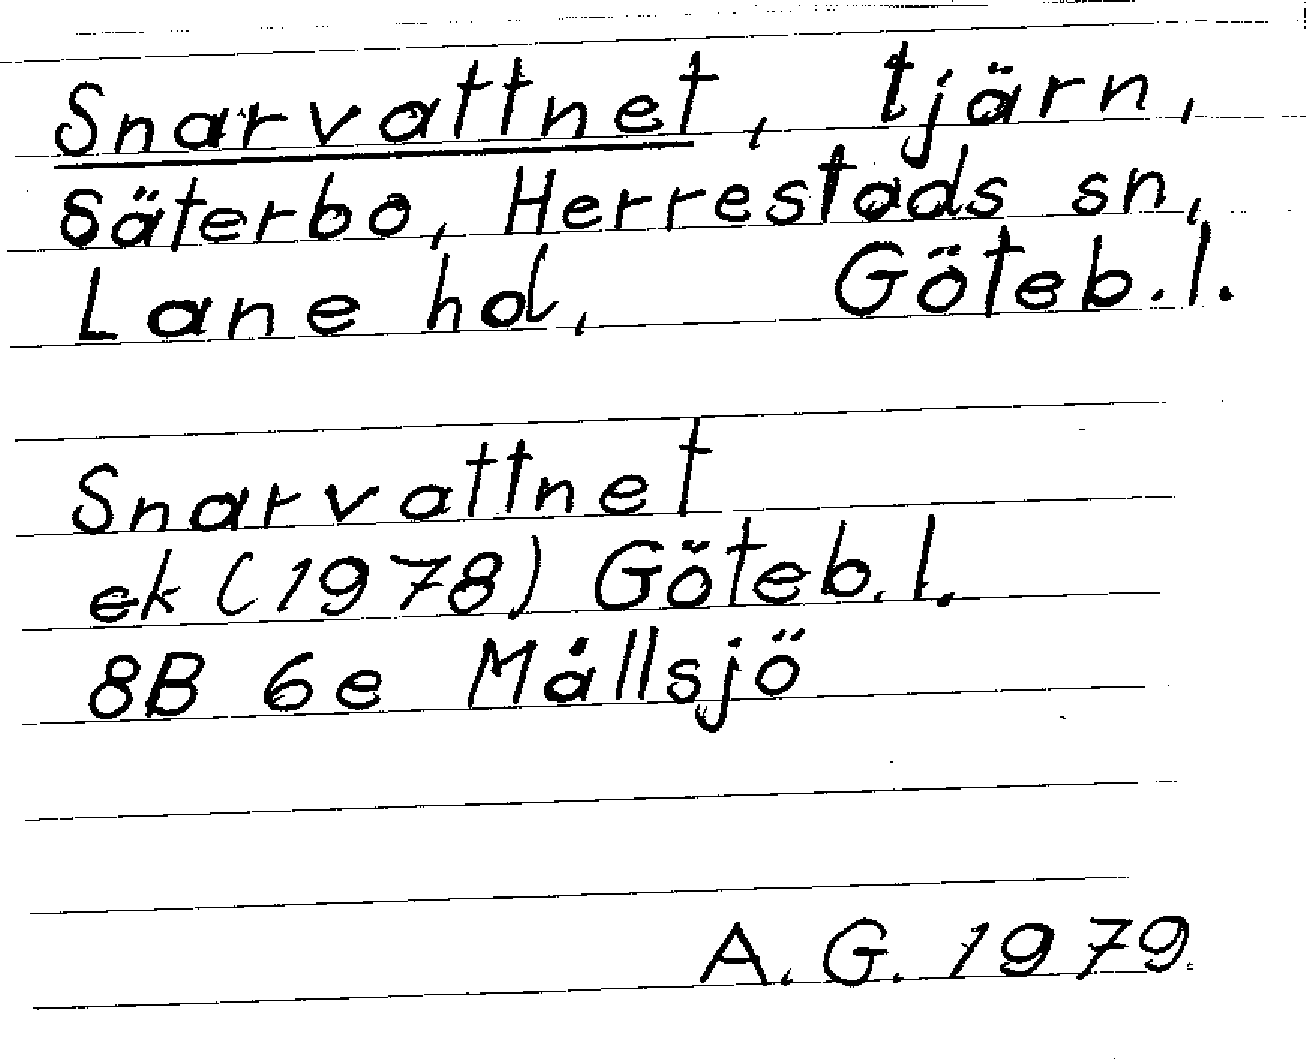 Snarvattnet, tjärn,
Säterbo, Herrestads sn,
Lane hd, Göteb.l.
Snarvattnet
ek (1978) Göteb.l.
8B 6e Mållsjö
A.G. 1979